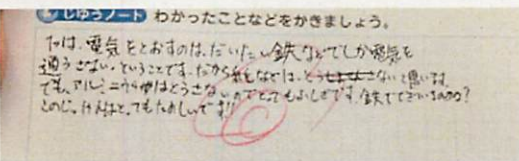 じゆうノート わかったことなどをかきましょう。
は、電気をとおすのは、だいたい鉄などでしか電気を
通うさない、ということです。だから紙などは、とうさないと思います。
でも、アルミニウムはとうさないのでとてもふしぎです。鉄でできているのかな?
このじっけんはとってもたのしいです!!